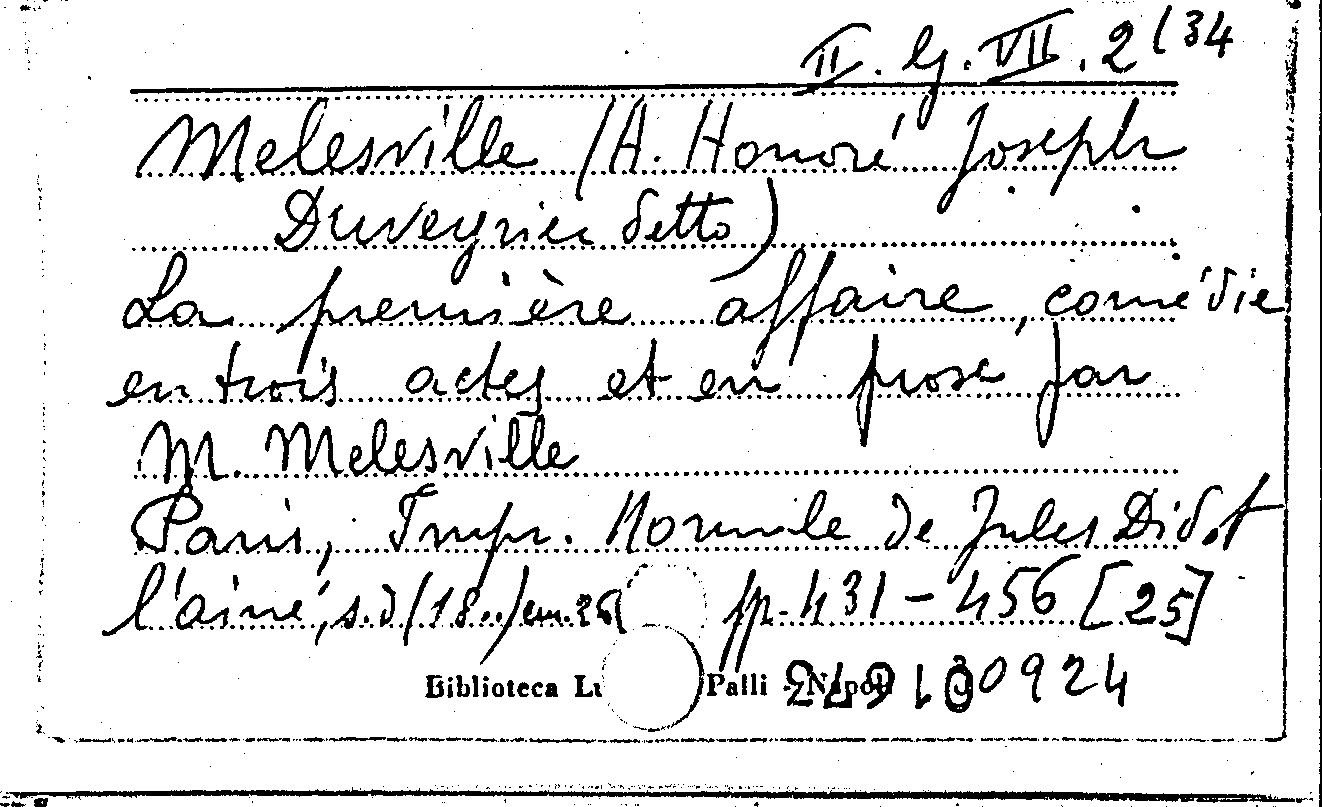 II. G. VII. 2(34
Melesville (A. Honoré Joseph
Duveyrier detto)
La première affaire, comédie
en trois actes et en prose par
M. Melesville
Paris, Impr. Normale de Jules Didot
l'ainé, s.d (18..) cm. 26 pp. 431-456 [25]
Biblioteca Lu Palli - Napoli 0924